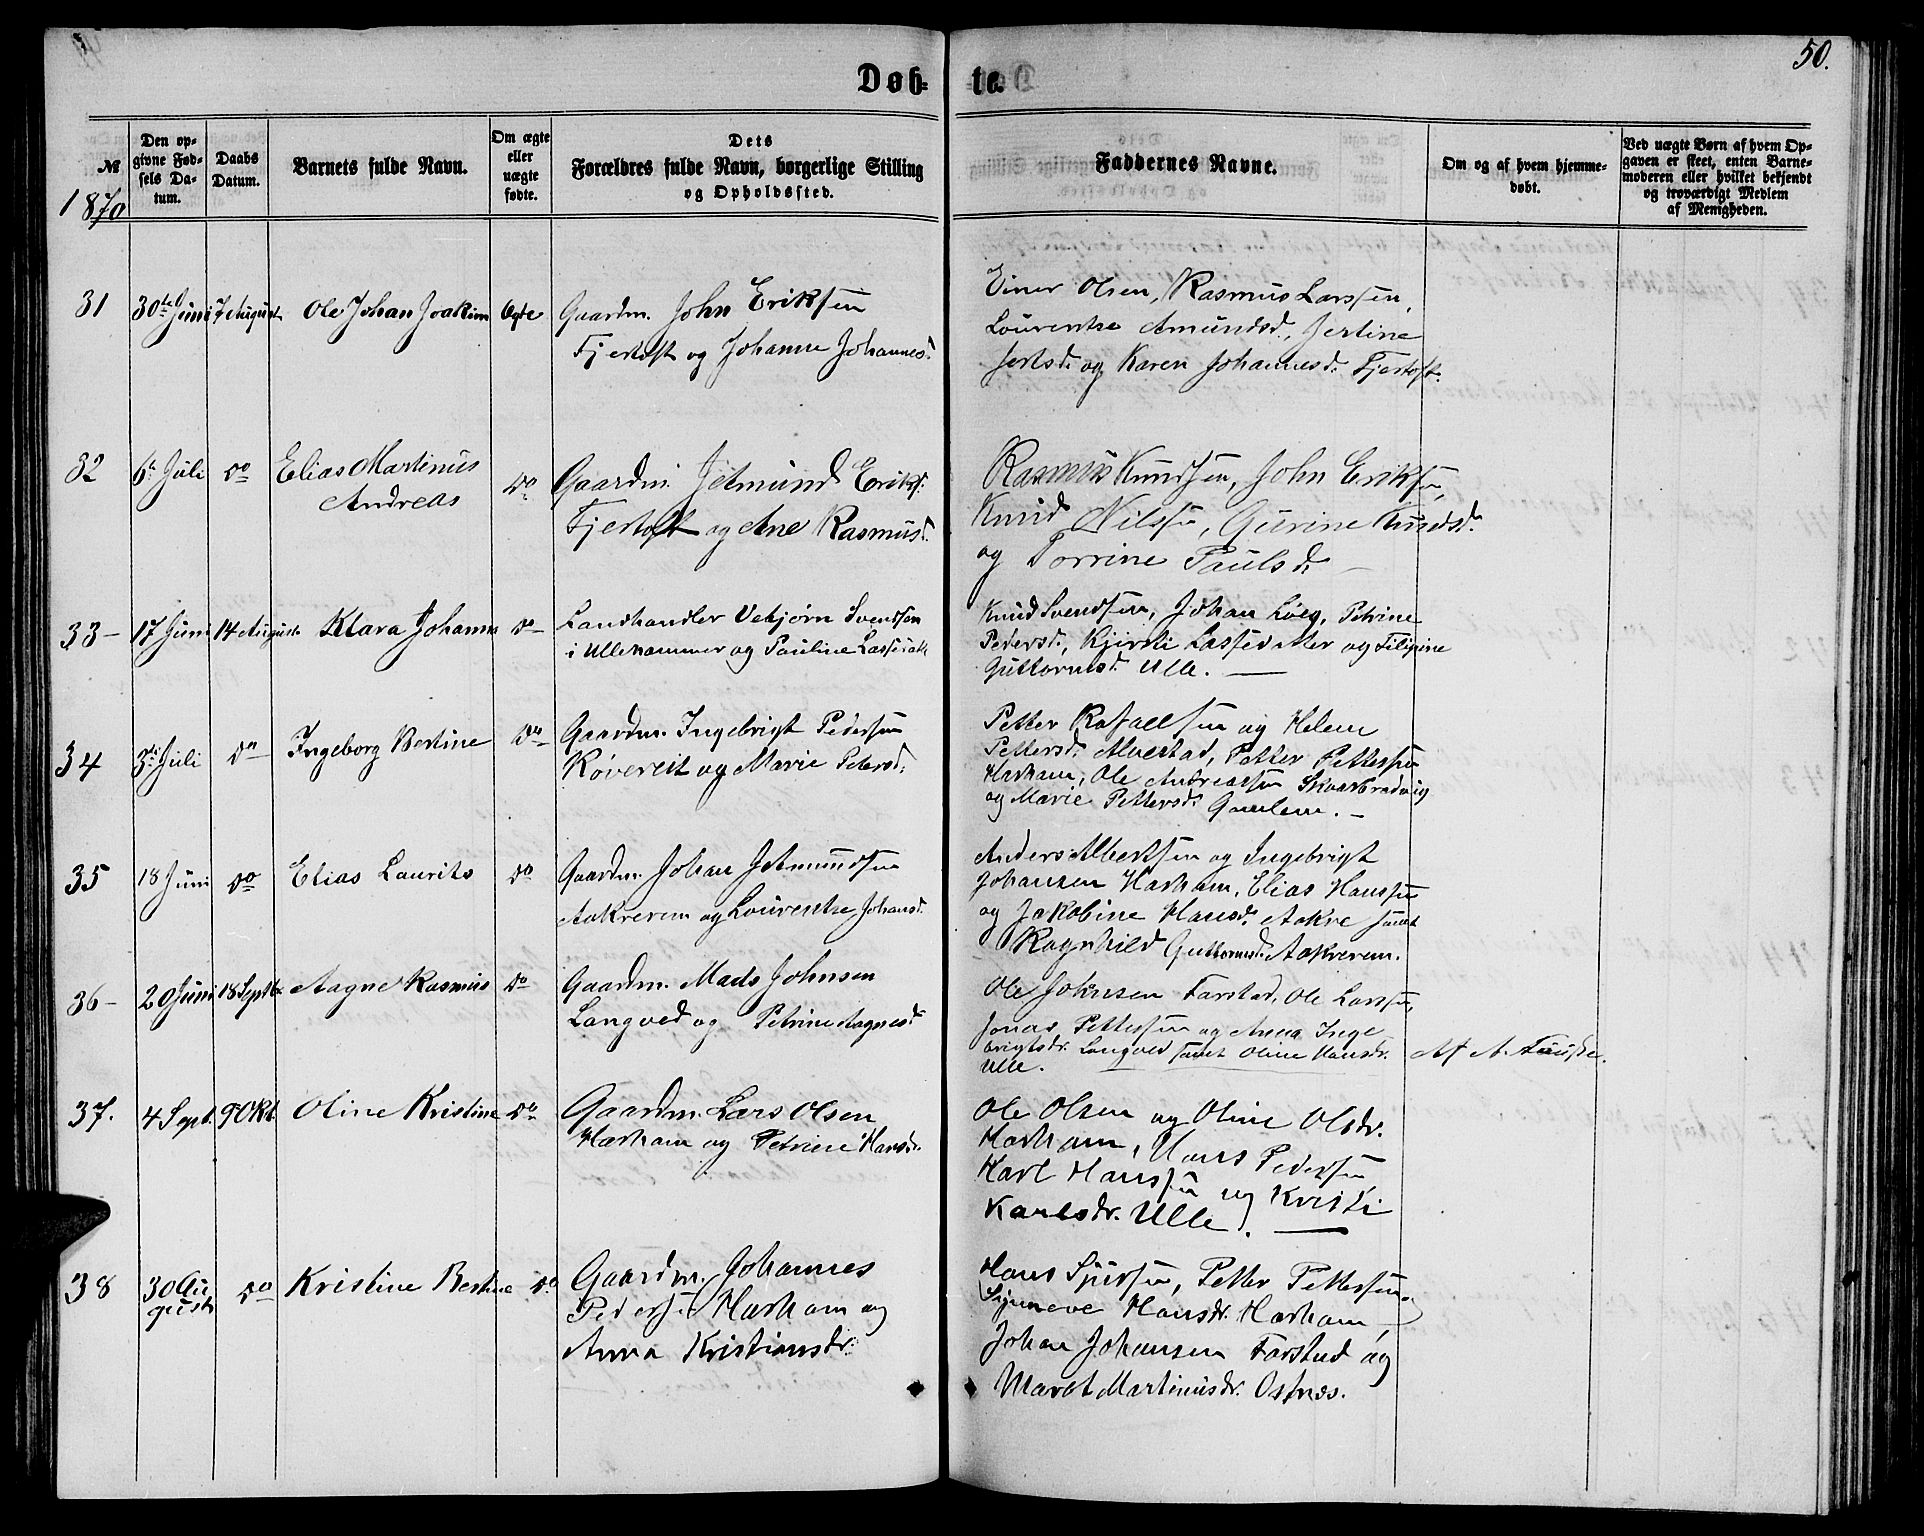 50.
Døb= te.
№
Den op-
givne Fød-
sels Da-
tum.
Daabs
Datum.
Barnets fulde Navn.
Om ægte
eller
uægte
fødte.
Dets
Forældres fulde Navn, borgerlige Stilling
og Opholdssted.
Faddernes Navne.
Om og af hvem hjemme-
døbt.
Ved uægte Børn af hvem Op-
gaven er skeet, enten Barne-
moderen eller hvilket bekjendt
og troværdigt Medlem
af Menigheden.
1870
31 30te Juni 7 August Ole Johan Joakim Egte Gaardm. John Eriksen
Fjertoft og Johanne Johannesd.
Einer Olsen, Rasmus Larssen,
Lourentse Amundsd., Jertine
Jertsd. og Karen Johannesd. Fjertoft.
32 6te Juli do Elias Martinus
Andreas
do Gaardm. Jetmund Eriks.
Fjertoft og Ane Rasmusd.
Rasmus Knudsen, John Eriksen,
Knud Nilsen, Gurine Knudsd.
og Torrine Paulsd.
33 17 Juni 14 August Klara Johanna do Landhandler Vebjørn Svendsen
i Ullehammer og Pauline Lassedatt
Knud Svendsen, Johan Løeg, Petrine
Pedersd., Kjersti Lassedatter og Filipine
Guttormsd. Ulle.
34 3die Juli do Ingeborg Bertine do Gaardm. Ingebrigt Pedersen
Røvereit og Marie Petersd.
Petter Rafaelsen og Helene
Pettersd. Alvestad, Petter Pettersen
Harham, Ole Andreassen Skvarbradvig
og Marie Pettersd. Gamlem.
35 18 Juni do Elias Laurits do Gaardm. Johan Jetmundsen
Aakrerem og Lourentse Johansd.
Anders Albertsen og Ingebrigt
Johansen Harham, Elias Hanssen
og Jakobine Hansd. Aakre samt
Ragnhild Guttormsd. Aakrerem.
36 20 Juni 18 Septbr Aagne Rasmus do Gaardm. Mads Johnsen
Longved og Petrine Aagnesd.
Ole Johnsen Farstad, Ole Larssen,
Jonas Pettersen og Anna Inge
brigtsdr. Longved samt Oline Hansdr.
Ulle.
Af A. Fauske.
37. 4 Sept. 9 Okt. Oline Kristine do Gaardm. Lars Olsen
Harham og Petrine Hansdr.
Ole Olsen og Oline Olsdr.
Harham, Hans Pedersen
Karl Hanssen og Kristi
Karlsdr. Ulle.
38 30 Au
gust
do Kristine Bertine do Gaardm. Johannes
Pedersen Harham og
Anna Kristiansdr.
Hans Sjursen, Petter Pettersen
Synneve Hansdr. Harham,
Johan Johansen Farstad og
Maret Martinusdr. Ostnes.